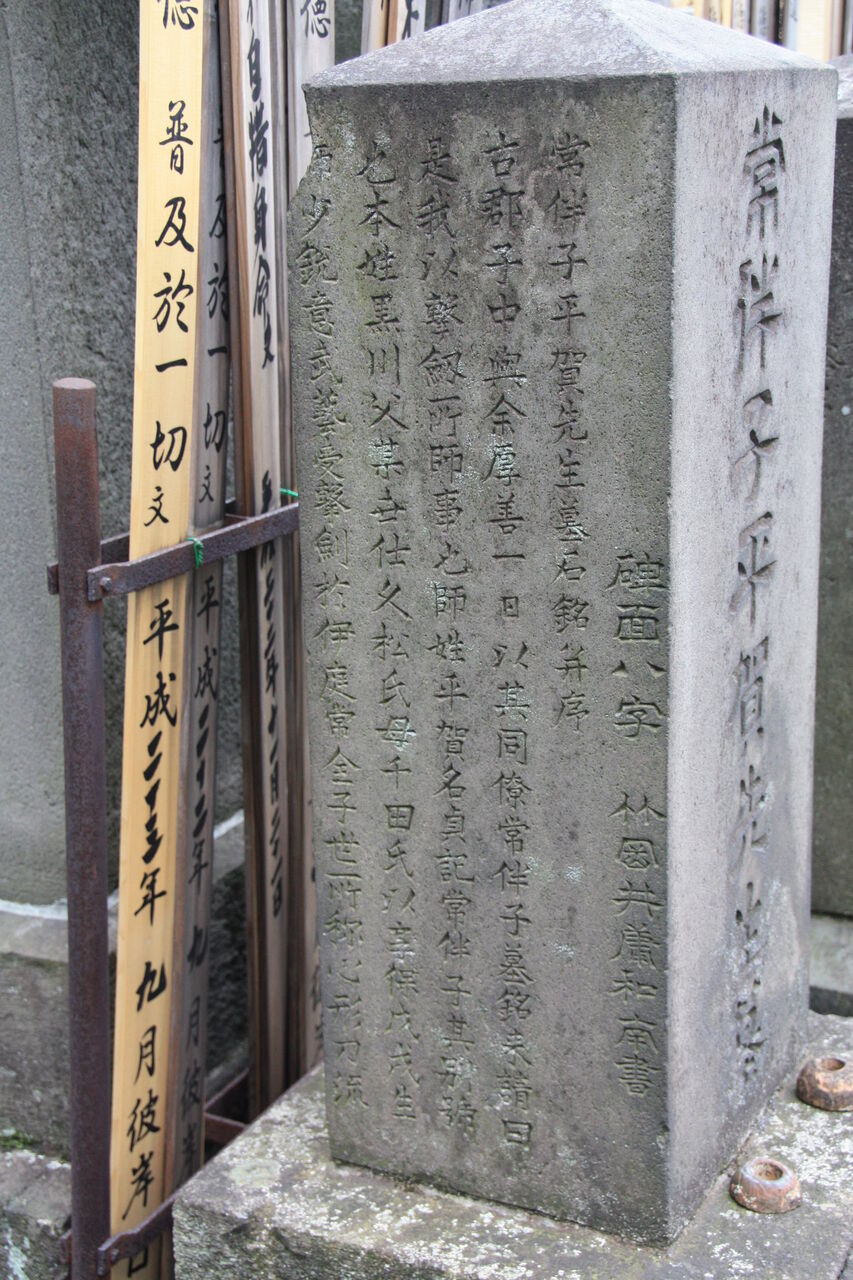 常伴子平賀先生墓
碑面八字 竹岡共薦和南書
常伴子平賀先生墓石銘并序
古郡子中與余厚善一日以其同僚常伴子墓銘来請曰
是我以撃劔所師事也師姓平賀名貞記常伴子其別號
也本姓黒川父某世仕久松氏母千田氏以享保戊戌生
師少鋭意武藝受撃劍於伊庭常全子世所称心形刀流
德 普及於一切文 平成二十三年九月彼岸
普及於一切文 平成二十二年九月彼岸
自携身命文
德